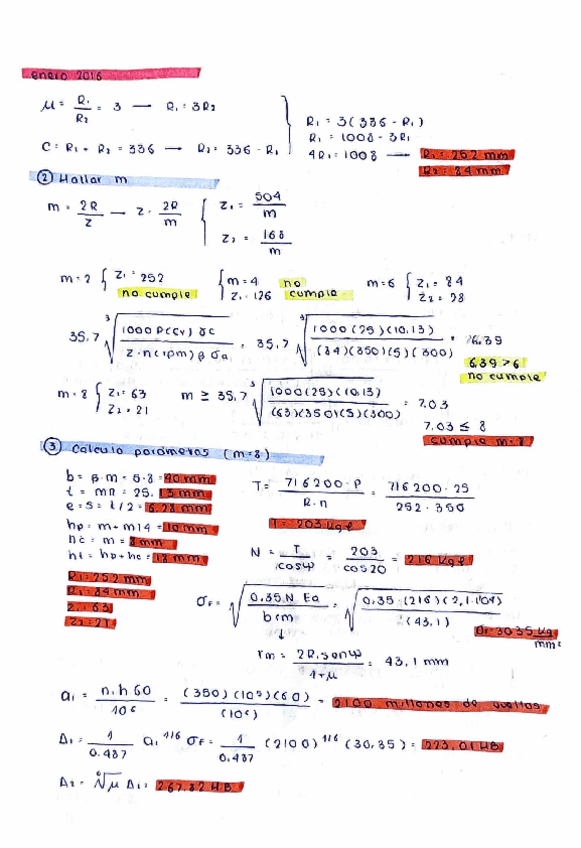 enero 2016
μ = R₁/R₂ = 3 → R₁ = 3R₂
C = R₁ + R₂ = 336 → R₂ = 336 - R₁
R₁ = 3(336 - R₁)
R₁ = 1008 - 3R₁
4R₁ = 1008 → R₁ = 252 mm
R₂ = 84 mm
② Hallar m
m = 2R/z → z = 2R/m { z₁ = 504/m
z₂ = 168/m
m=2 { z₁ = 252 no cumple
{ m=4 z₁ = 126 no cumple
m=6 { z₁ = 84 z₂ = 28
35,7 ∛(1000 P(CV) γc / z·n(rpm) β σa) = 35,7 ∛(1000(25)(10,13) / (84)(350)(5)(300)) = 6.39
6.39 > 6
no cumple
m=8 { z₁ = 63 z₂ = 21
m ≥ 35,7 ∛(1000(25)(10,13) / (63)(350)(5)(300)) = 7.03
7.03 ≤ 8
cumple m=8
③ Calculo parámetros (m=8)
b = β·m = 5·8 = 40 mm
hp = m + m/4 = 10 mm
hc = m = 8 mm
ht = hp + hc = 18 mm
R₁ = 252 mm
R₂ = 84 mm
z₁ = 63
z₂ = 21
T = 716200·P / R·n = 716200·25 / 252·350
T = 203 kgf
N = T/cosψ = 203/cos20 = 216 kgf
rm = 2R₁senψ / 1+μ = 43,1 mm
a₁ = n₁h60 / 10⁶ = (350)(10⁵)(60) / (10⁶) = 2100 millones de vueltas
Δ₁ = 1/0.487 a₁^1/6 σF = 1/0.487 (2100)^1/6 (30,35) = 223,01 HB
Δ₂ = ⁶√μ Δ₁ = 267.82 HB